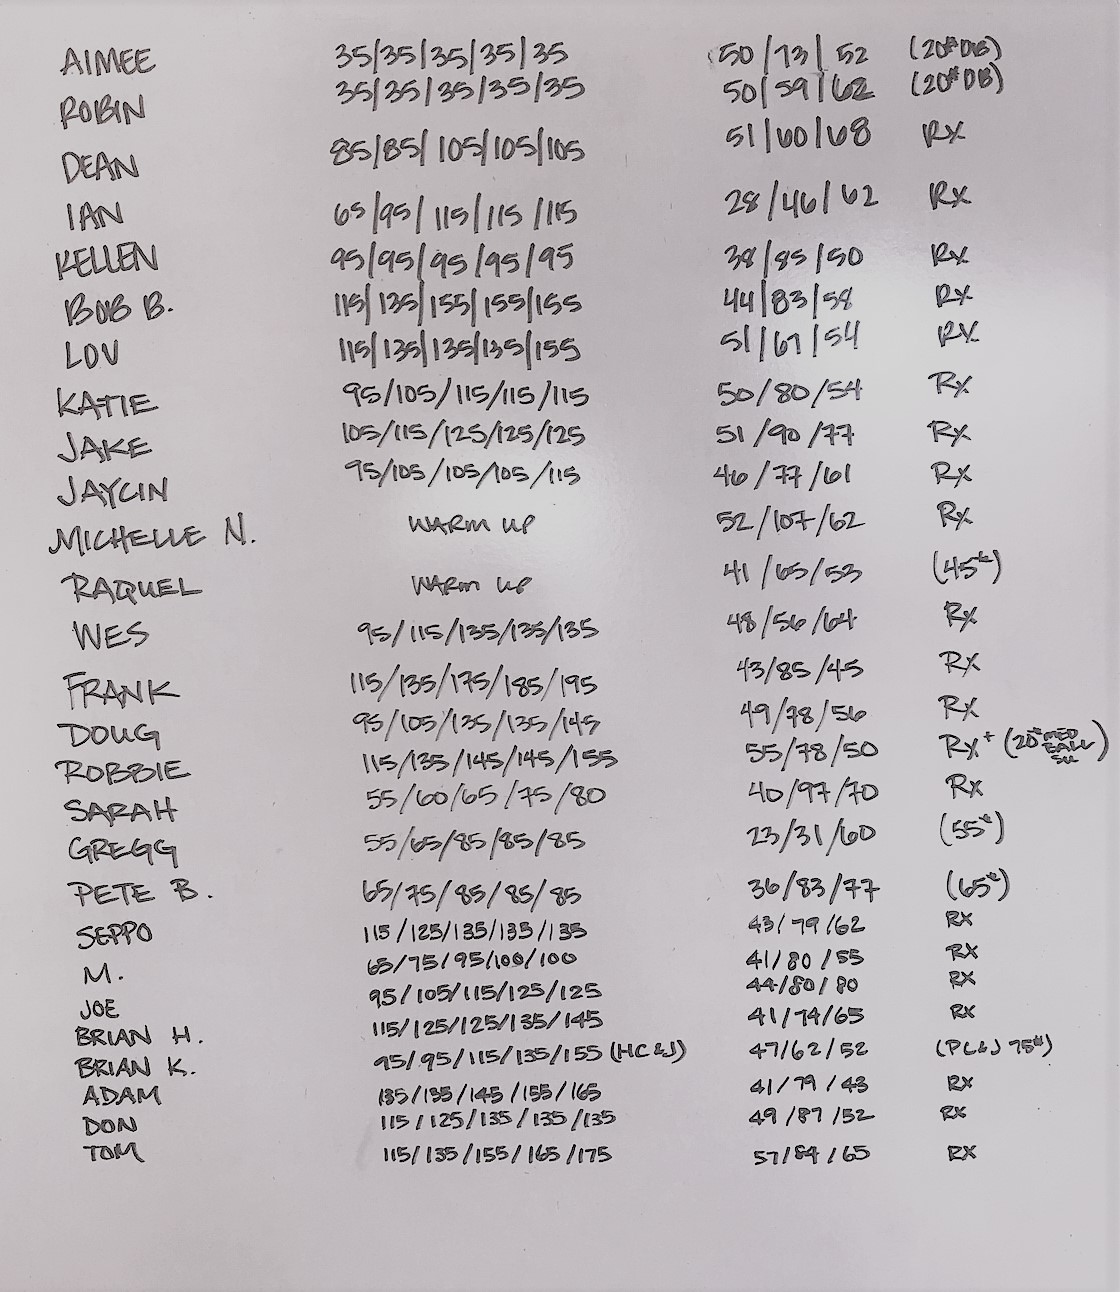 AIMEE 35/35/35/35/35 50/73/52 (20# DB)
ROBIN 35/35/35/35/35 50/59/62 (20# DB)
DEAN 85/85/105/105/105 51/60/68 RX
IAN 65/95/115/115/115 28/46/62 RX
KELLEN 95/95/95/95/95 38/85/50 RX
BOB B. 115/135/155/155/155 44/83/58 RX
LOV 115/135/135/135/155 51/67/54 RX
KATIE 95/105/115/115/115 50/80/54 RX
JAKE 105/115/125/125/125 51/90/77 RX
JAYCIN 95/105/105/105/115 46/77/61 RX
MICHELLE N. WARM UP 52/107/62 RX
RAQUEL WARM UP 41/65/53 (45#)
WES 95/115/135/135/135 48/56/64 RX
FRANK 115/135/175/185/195 43/85/45 RX
DOUG 95/105/135/135/145 49/78/56 RX
ROBBIE 115/135/145/145/155 55/78/50 RX+ (20# MED BALL SU)
SARAH 55/60/65/75/80 40/97/70 RX
GREGG 55/65/85/85/85 23/31/60 (55#)
PETE B. 65/75/85/85/85 36/83/77 (65#)
SEPPO 115/125/135/135/135 43/79/62 RX
M. 65/75/95/100/100 41/80/55 RX
JOE 95/105/115/125/125 44/80/80 RX
BRIAN H. 115/125/125/135/145 41/74/65 RX
BRIAN K. 95/95/115/135/155 (HC&J) 47/62/52 (PC&J 75#)
ADAM 135/135/145/155/165 41/79/43 RX
DON 115/125/135/135/135 49/87/52 RX
TOM 115/135/155/165/175 57/84/65 RX